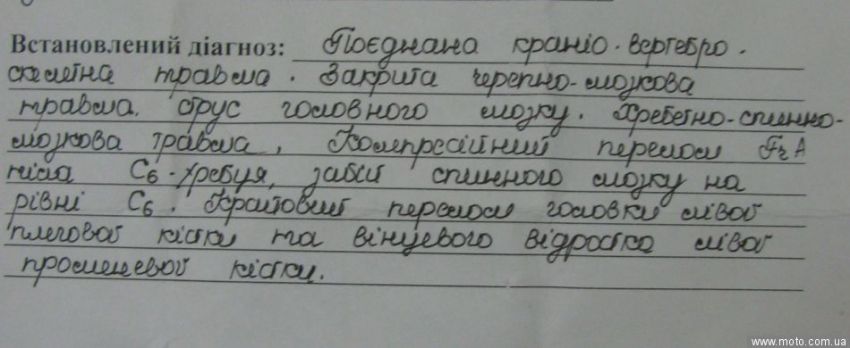 Встановлений діагноз: Поєднана краніо-вертебро-
скелетна травма. Закрита черепно-мозкова
травма. Струс головного мозку. Хребетно-спинно-
мозкова травма, Компресійний перелом Fr A
тіла C6-хребця, забій спинного мозку на
рівні C6. Крайовий перелом головки лівої
плечової кістки та вінцевого відростка лівої
променевої кістки.
www.moto.com.ua